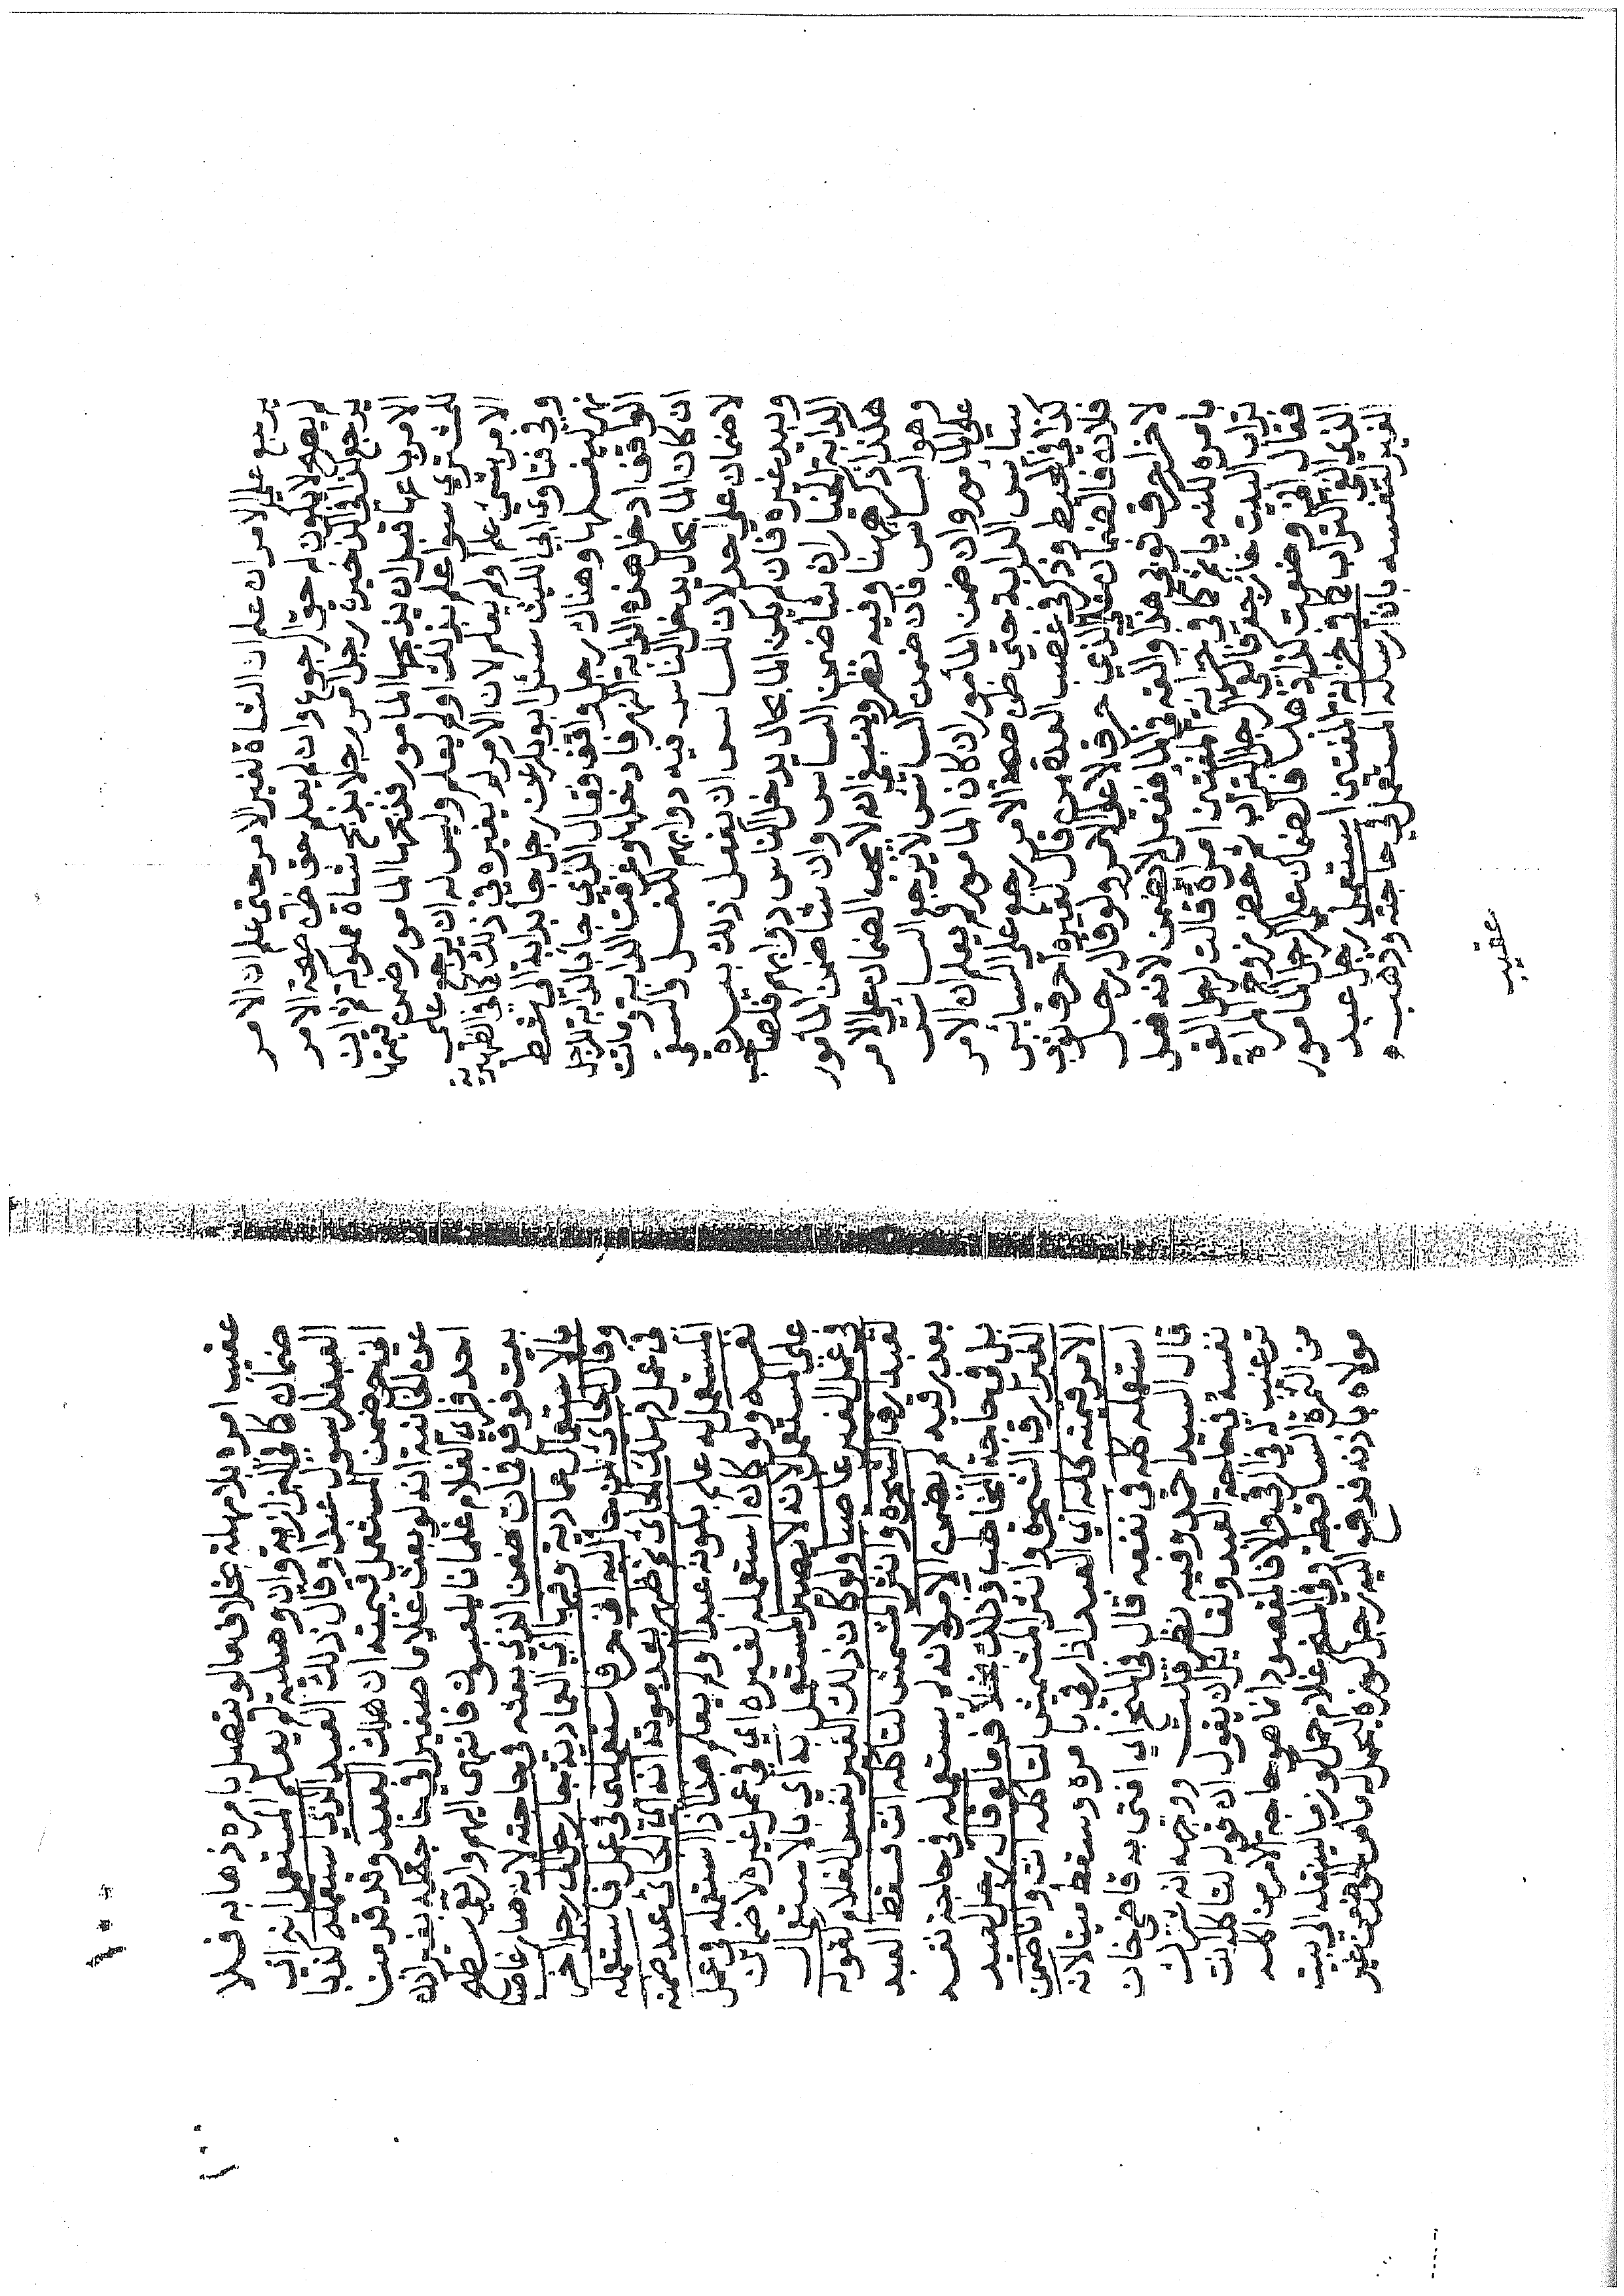 يرجع على الامر ان علم ان الشاة لغير الامر حتى علم ان الامر
لم يصح لا يكون له حق الرجوع وان لم يعلم حتى ظن صحة الامر
يرجع كذا في الذخيرة رجل امر رجلا بذبح شاة مملوكة ثم ان
الامر باعها قبل ان يذبحها المامور فذبحها المامور ضمن قيمتها
للمشتري سواء علم بذلك او لم يعلم وليس له ان يرجع على
الامر بشيء علم او لم يعلم لان الامر لم يغيره في ذلك كما في الظهيرية
وفي فتاوى ابي الليث سئل ابو بكر عن رجل جا بدابة الى شط
نهر ليغسلها وهناك رجل واقف فقال الذي جا بالدابة للرجل
الواقف ادخل هذه الدابة النهر فادخلها وغرقت الدابة وماتت
ان كان الما بحال يدخل الناس فيه دوابهم للغسل والسقي
لا ضمان على احد لان للسايس ان يفعل ذلك بيده
وبيد غيره فان لم يكن الما بحال يدخل الناس دوابهم فلصاحب
الدابة الخيار ان شا ضمن السايس وان شا ضمن المامور
هكذا ذكر ههنا وفيه نظر وينبغي ان لا يجب الضمان على الامر
وهو السايس فان ضمن السايس لا يرجع السايس
على المامور وان ضمن المامور ان كان المامور لم يعلم ان الامر
سايس الدابة حتى ظن صحة الامر رجع على السايس
كذا في المحيط وذكر في غصب العدة من قال لغيره احرق ثوب
فلان فالضمان على الذي حرق لا على الامر ولو قال رجل
لاخر احرق ثوبي هذا والقه في الما ففعل لا يضمن لانه فعل
بامره لكنه ياثم كما في خزانة المفتين امراة قالت لرجل الق
تراب البيت خارجه فالقى الرجل التراب ثم حضر زوج المراة
فقال اني وضعت كذا ذهبا فالضمان على الرجل المامور
الذي القى التراب كما في خزانة المفتين استعمل رجل عبد
الغير لنفسه بان ارسله المستعمل في حاجته وذهب
عقيب
عقيب امره بلا مهلة بخلاف ما لو يتصل بامره ذهابه فلا
ضمان كما في البزازية وان وصلية لم يعلم المستعمل انه ان
العبد المرسول عبدا وقال ذلك العبد الذي استعمله كذبا
اني حر ضمن المستعمل قيمته ان هلك العبد وقد قدمنا
عن الخانية انه لو بعث غلاما صغيرا في حاجته بغير اذن
احد فراى الغلام غلمانا يلعبون فانتهى اليهم وارتقى سطح
بيت فوقع فمات ضمن الذي بعثه في حاجته لانه صار غاصبا
بالاستعمال عمادية وفيها اي العمادية جا رجل الى رجل اخر
وقال الجائي اني حر فاستعملني في عمل فاستعمله
في عمل وهلك الجائي ثم ظهر بعد موته انه اي الجائي عبد ضمنه
المستعمل له علم بكونه عبدا او لم يعلم هذا اذا استعمله في عمل
نفسه ولو كان استعمله لغيره اي في عمل غيره لا ضمان
على المستعمل لانه لا يصير المستعمل به اي بالاستعمال
في عمل الغير غاصبا ولو كان ذلك الغير نفس الغلام كقوله
لعبد ارق الشجرة وانثر المشمش لتاكله انت فسقط العبد
بعد رقيه لم يضمن الامر لانه لم يستعمله في حاجة نفسه
بل في حاجة المخاطب وذلك بخلاف ما لو قال رجل لعبد
الغير ارق الشجرة وانثر المشمش لتاكله انت وانا ضمن
الامر قيمته كله اي العبد اذا رقى بامره وسقط ميتا لانه
استعمله كله في نفعه قال في المنح اي افتى به قاضي خان
قال السيد احمد وفيه نظر قلت ووجهه انه شرك
نفسه في مصلحة العبد ولقائل ان يقول ان قوله لتاكله انت
ترغيب له في الرقي والا فالمقصود انما هو حاجة الامر من اكله
من الثمرة الساقطة وفي المنح غلام حمل كوز ما لينقله الى بيت
مولاه باذنه فدفع اليه رجل كوزه ليحمل له ما من الحوض بغير